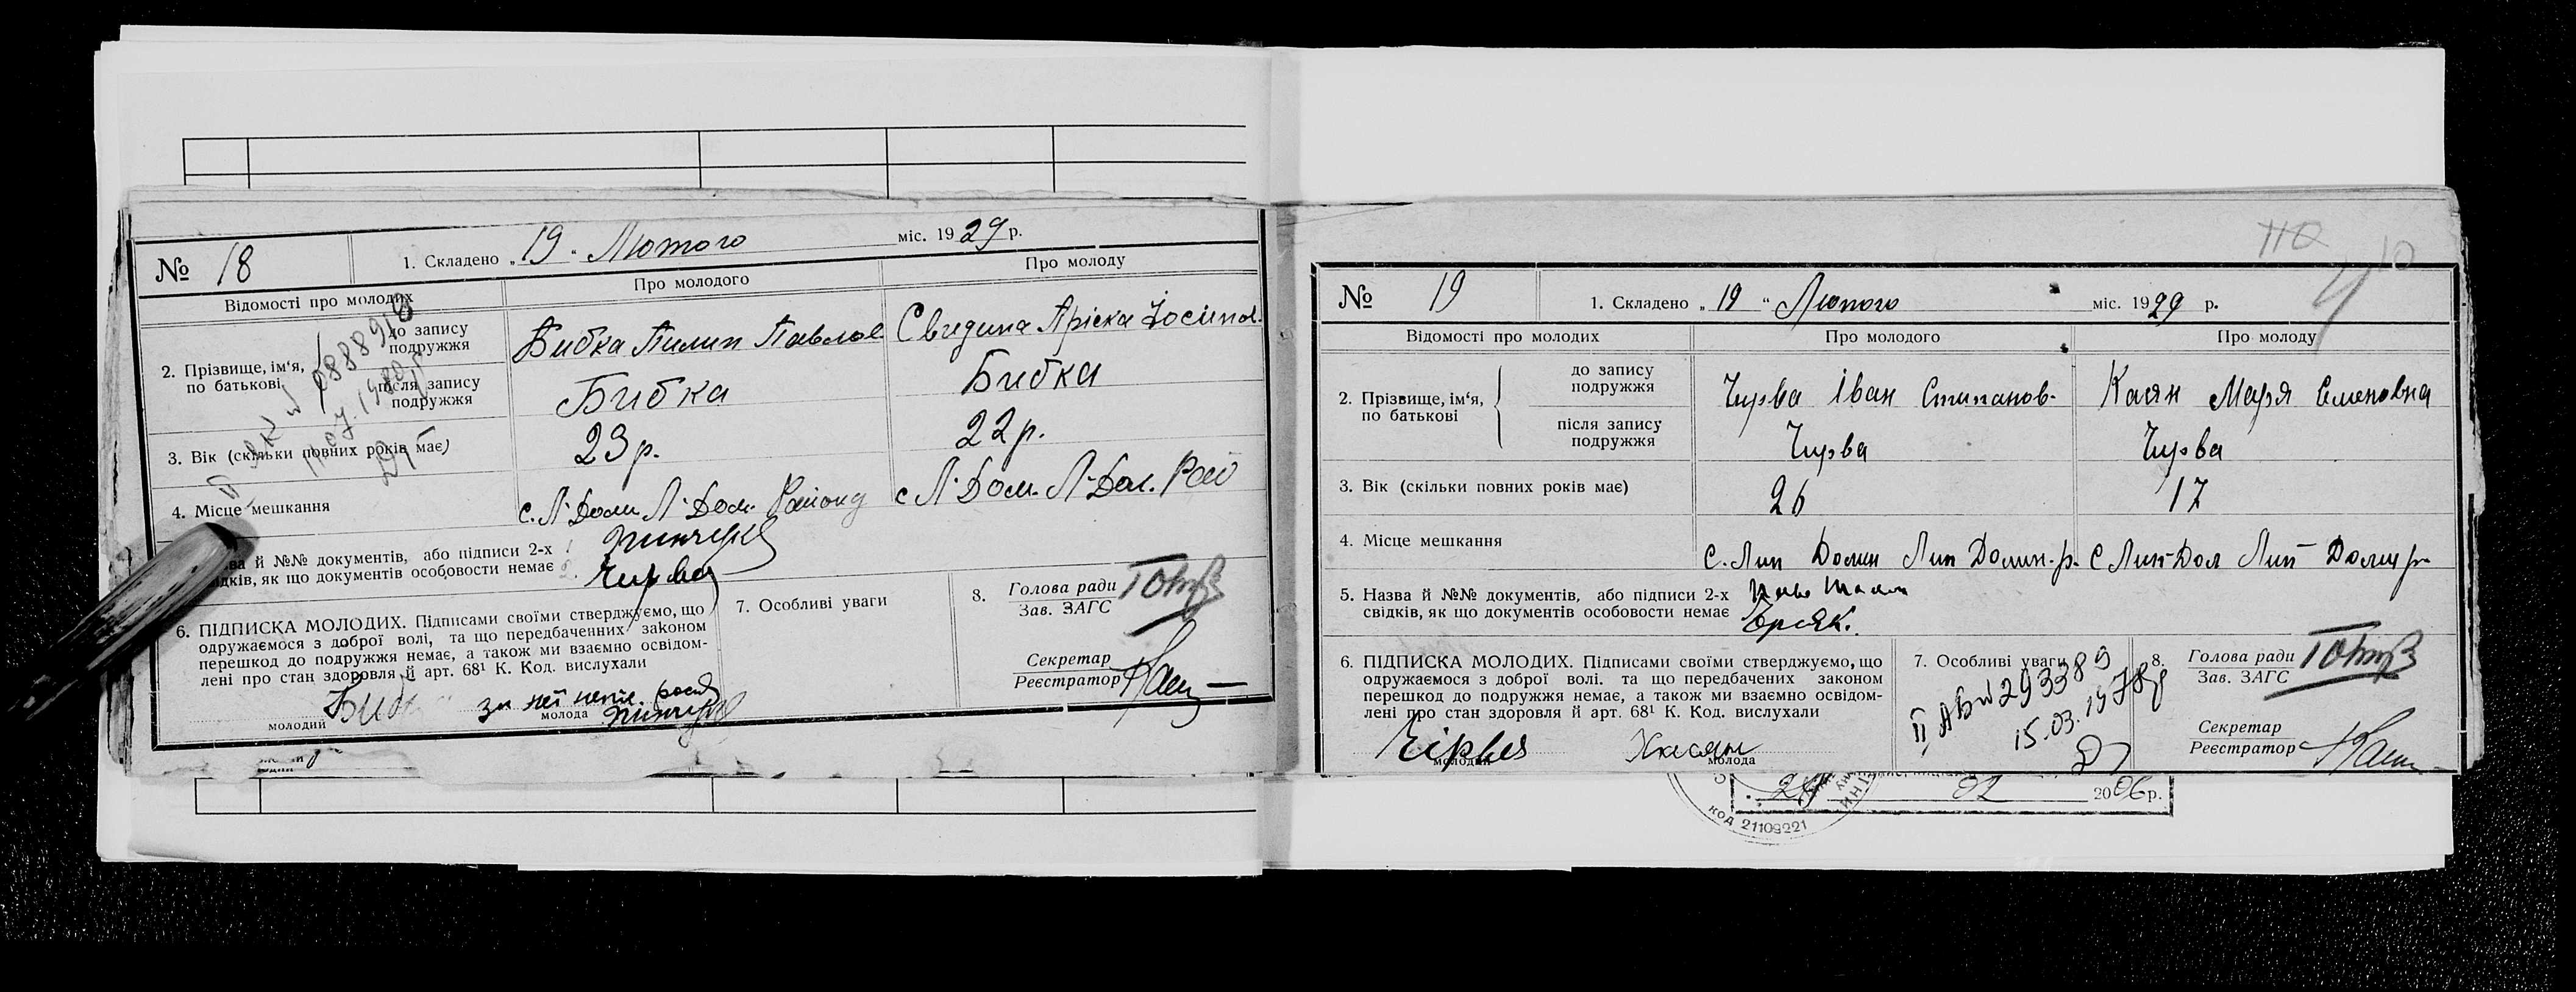 № 18
1. Складено „19“ Лютого міс. 1929 р.
Відомості про молодих
Про молодого
Про молоду
2. Прізвище, ім‘я, по батькові
до запису подружжя
Бибка Пилип Павлов.
Свидина Аріска Йосипов.
після запису подружжя
Бибка
Бибка
3. Вік (скільки повних років має)
23 р.
22 р.
4. Місце мешкання
с. Л-Доли Л-Дол. Району
с Л-Дол. Л-Дол. Рай
й №№ документів, або підписи 2-х
свідків, як що документів особовости немає
Чирва
6. ПІДПИСКА МОЛОДИХ. Підписами своїми стверджуємо, що
одружаємося з доброї волі, та що передбаченних законом
перешкод до подружжя немає, а також ми взаємно освідом-
лені про стан здоровля й арт. 68¹ К. Код. вислухали
молодий
молода
за неї непис.
7. Особливі уваги
8. Голова ради
Зав. ЗАГС
Секретар
Реєстратор
110
10
№ 19
1. Складено „19“ Лютого міс. 1929 р.
Відомості про молодих
Про молодого
Про молоду
2. Прізвище, ім‘я, по батькові
до запису подружжя
Чирва Іван Стипанов-
Касян Маря Семеновна
після запису подружжя
Чирва
Чирва
3. Вік (скільки повних років має)
26
17
4. Місце мешкання
С. Лип Долин Лип Долин. р.
С Лип-Дол Лип Долин р-
5. Назва й №№ документів, або підписи 2-х
свідків, як що документів особовости немає
6. ПІДПИСКА МОЛОДИХ. Підписами своїми стверджуємо, що
одружаємося з доброї волі. та що передбачених законом
перешкод до подружжя немає, а також ми взаємно освідом-
лені про стан здоровля й арт. 68¹ К. Код. вислухали
молодий
молода
7. Особливі уваги
II АБ № 293389
15.03.1978 р
8. Голова ради
Зав. ЗАГС
Секретар
Реєстратор
02 2006 р.
код 21109221